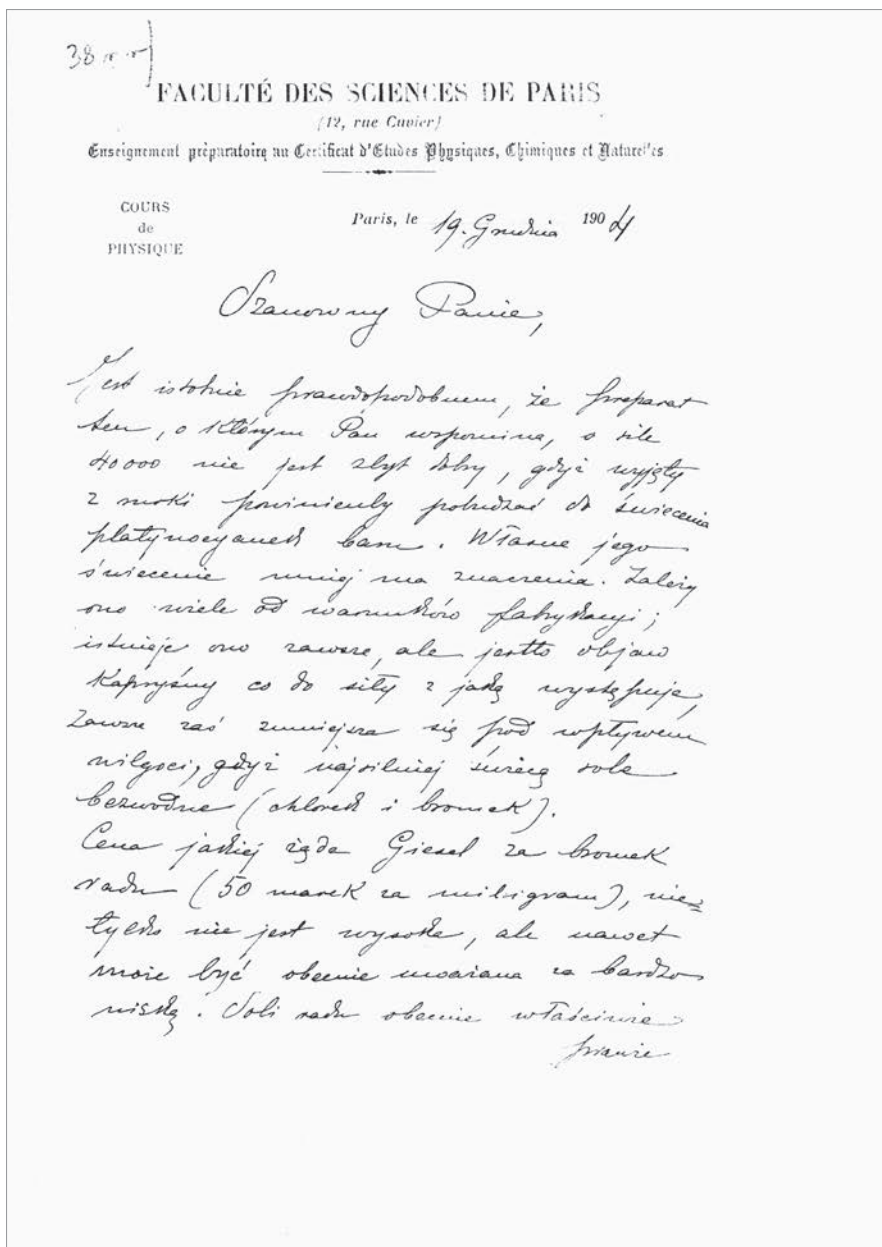 38
FACULTÉ DES SCIENCES DE PARIS
(12, rue Cuvier)
Enseignement préparatoire au Certificat d'Etudes Physiques, Chimiques et Naturelles
COURS
de
PHYSIQUE
Paris, le 19. Grudnia 1904
Szanowny Panie,
Jest istotnie prawdopodobnem, że preparat
ten, o którym Pan wspomina, o sile
40000 nie jest zbyt dobry, gdyż wyjęty
z rurki powinienby pobudzać do świecenia
platynocyanek baru. Własne jego
świecenie mniej ma znaczenia. Zależy
ono wiele od warunków fabrykacyi;
istnieje ono zawsze, ale jestto objaw
kapryśny co do siły z jaką występuje,
Zawsze zaś zmniejsza się pod wpływem
wilgoci, gdyż najsilniej świecą sole
bezwodne (chlorek i bromek).
Cena jakiej żąda Giesel za bromek
radu (50 marek za miligram), nie=
tylko nie jest wysoka, ale nawet
może być obecnie uważana za bardzo
niską. Soli radu obecnie właściwie
prawie